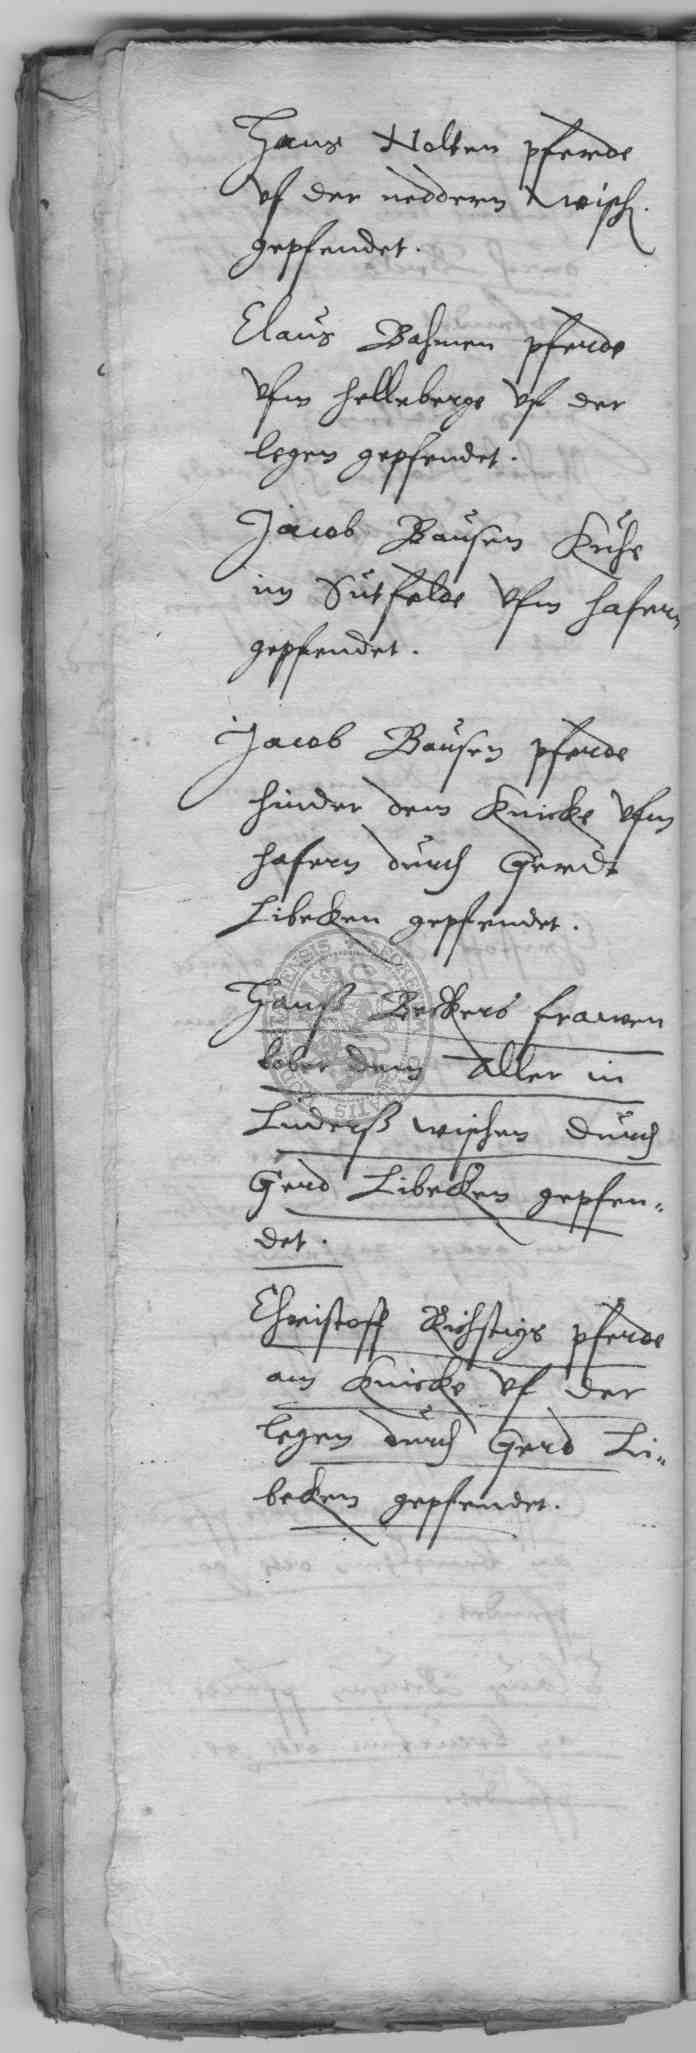 Hans Nolten pferde
vf der neddern wisch
gepfendet.
Claus Bahmen pferde
vfm helleberge vf der
legen gepfendet.
Jacob Bausen Kuhe
im Sutfelde vfm hafern
gepfendet.
Jacob Bausen pferde
hinder dem Knicke vfm
hafern durch Gerdt
Libecken gepfendet.
Hanß Beckers frawen
vber dem aller in
Luderß wischen durch
Gerd Libecken gepfen-
det.
Christoff Richstigs pferde
am Knicke vf der
legen durch Gerd Li-
becken gepfendet.